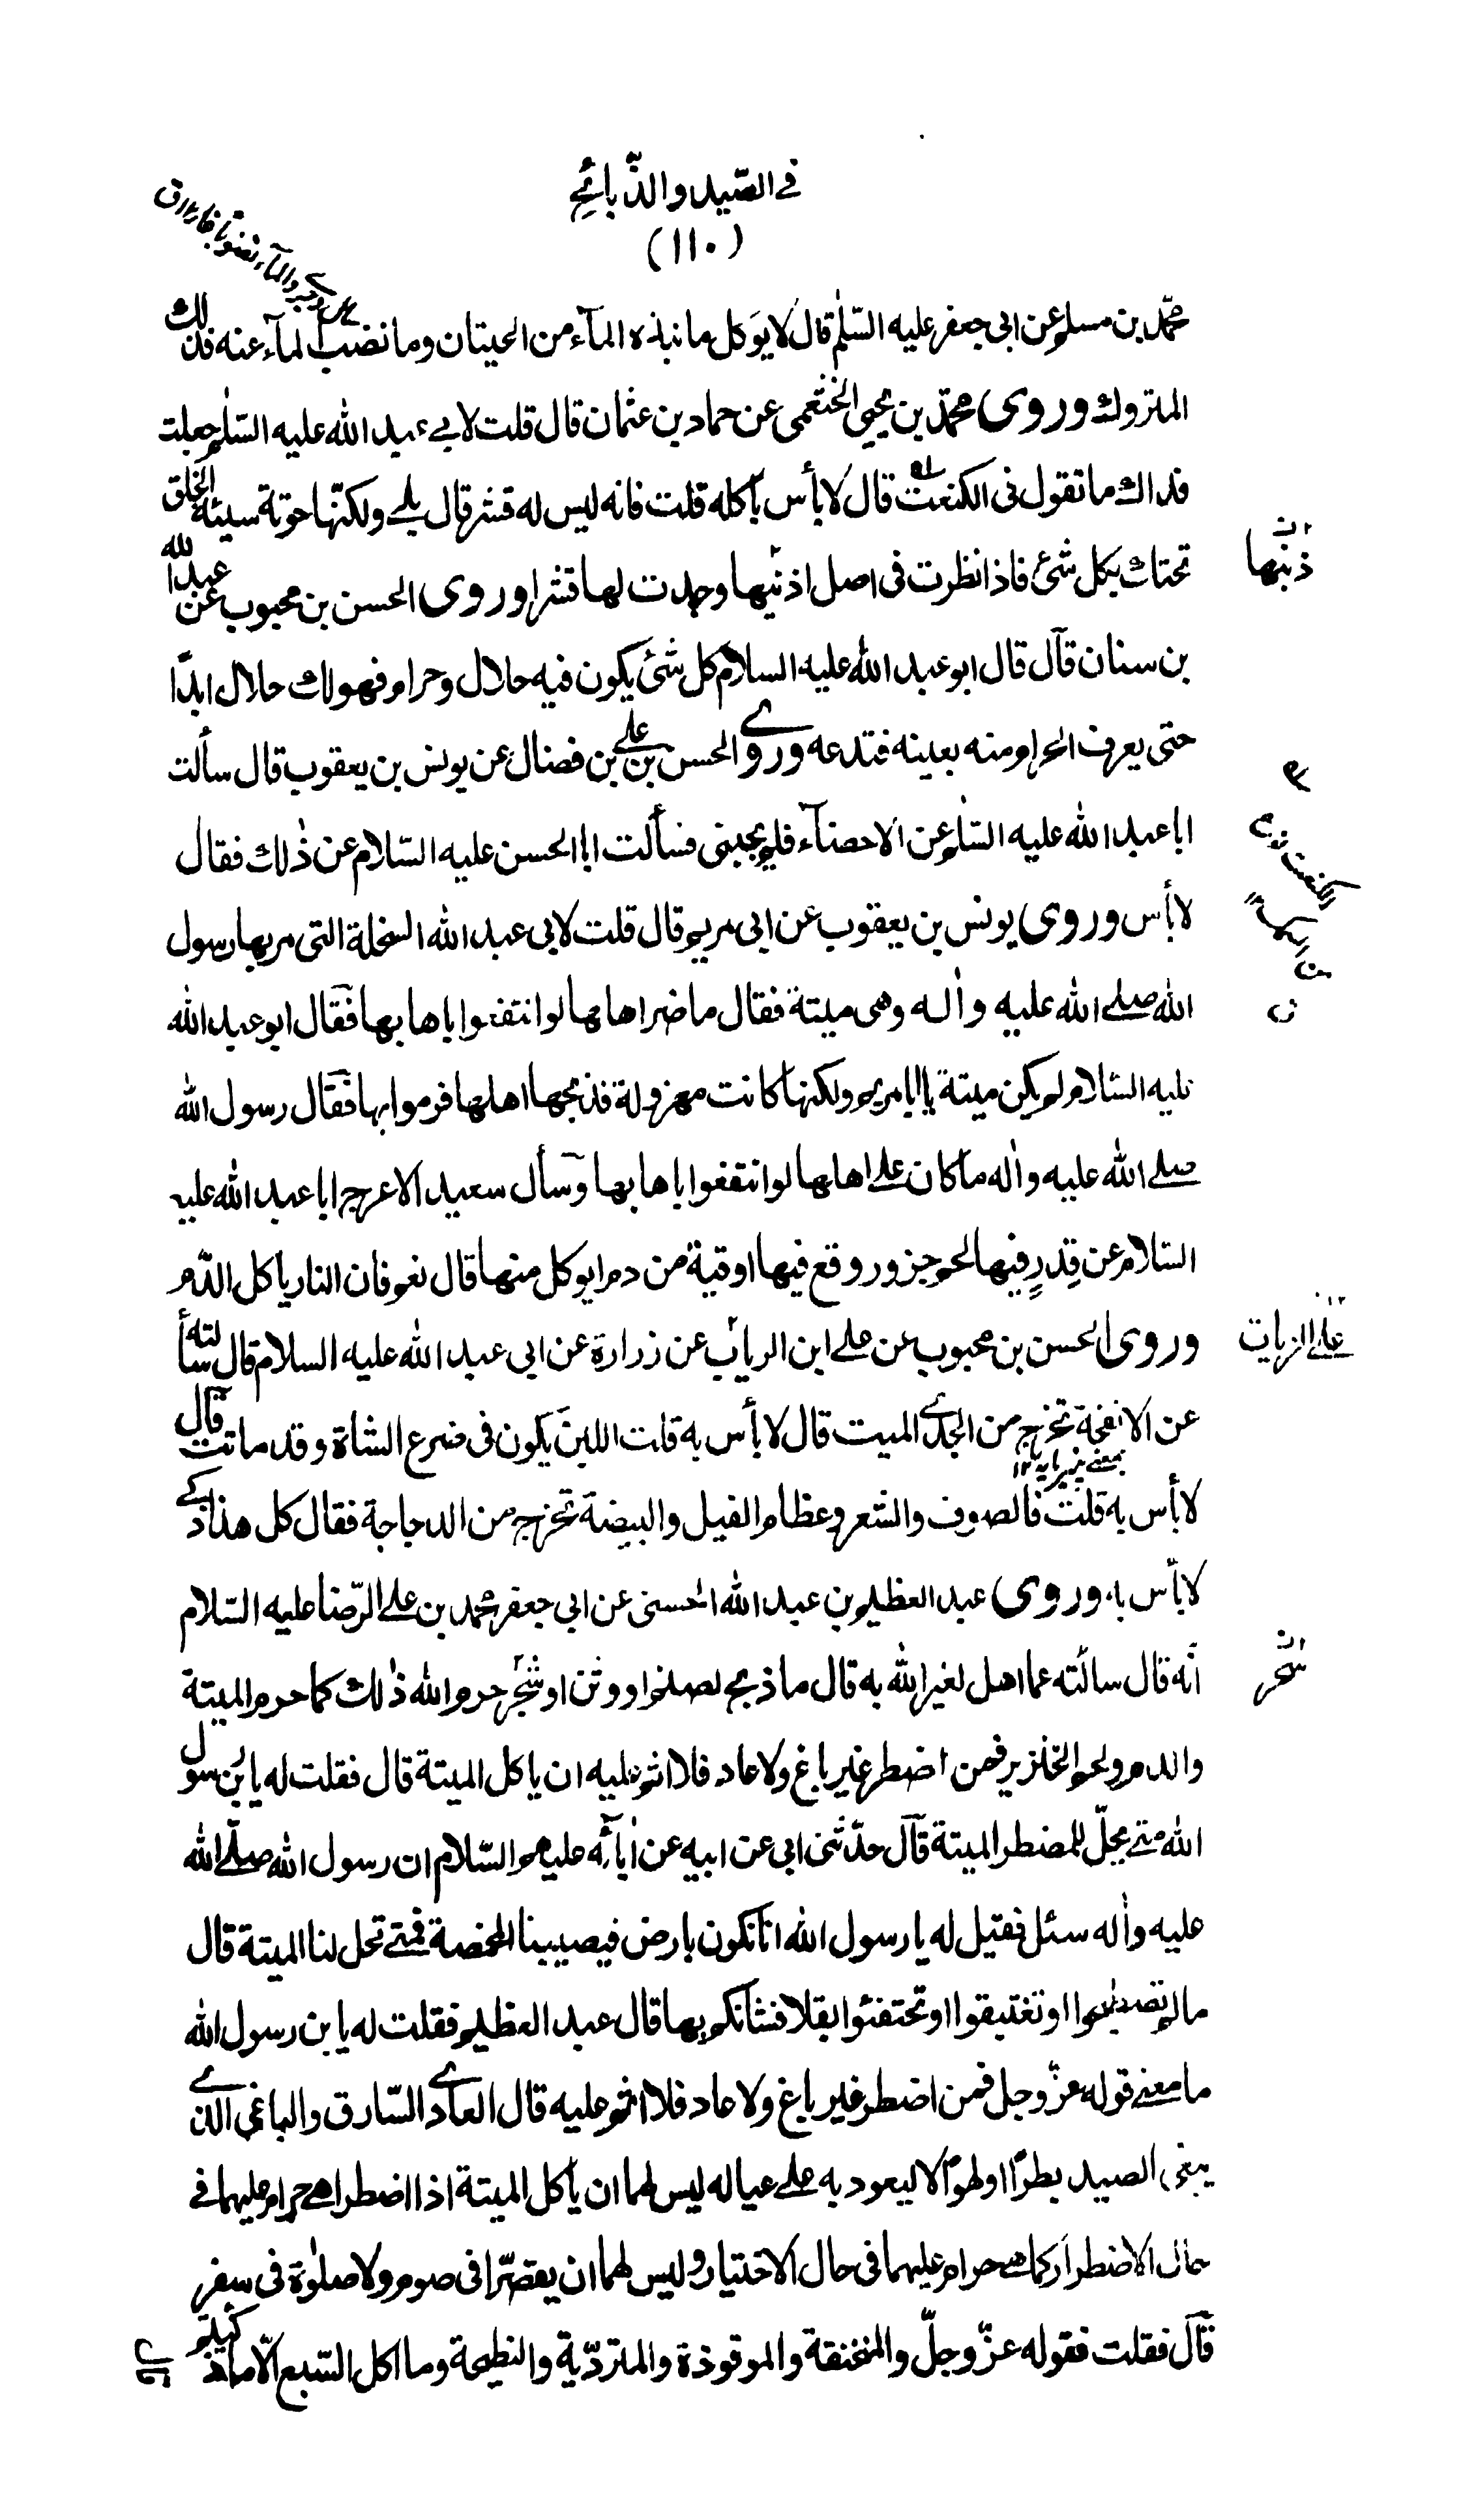 في الصّيد والذّبائح
(١١٠)
محمّد بن مسلم عن ابى جعفر عليه السّلم قال لا يؤكل ما نبذه المآء من الحيتان وما نضب المآء عنه فذلك
المتروك وروى محمّد بن يحيى الخثعمى عن حماد بن عثمان قال قلت لابي عبد الله عليه السّلم جعلت
فداك ما تقول فى الكنعت قال لا بأس بأكله قلت فانه ليس له قشر قال بلے ولكنّها حوتة سيئة الخلق
تحتك بكل شئ فاذا نظرت فى اصل اذنيها وجدت لها قشرا وروى الحسن بن محبوب عن عبد الله
ذنبها
بن سنان قال قال ابو عبد الله عليه السلام كل شئ يكون فيه حلال وحرام فهو لك حلال ابدًا
حتى يعرف الحرام منه بعينه فتدعه وروے الحسن بن علے بن فضال عن يونس بن يعقوب قال سألت
ابا عبد الله عليه السّلم عن الاحصآء فلم يجبنى فسألت ابا الحسن عليه السّلام عن ذلك فقال
لا بأس وروى يونس بن يعقوب عن ابى مريم قال قلت لابى عبد الله السخلة التى مر بها رسول
الله صلے الله عليه واٰله وهى ميتة فقال ما ضر اهلها لو انتفعوا باهابها فقال ابو عبد الله
عليه السّلام لم يكن ميتة يا ابا مريم ولكنها كانت مهزولة فذبحها اهلها فرموا بها فقال رسول الله
صلے الله عليه واٰله ما كان علے اهلها لو انتفعوا باهابها وسأل سعيد الاعرج ابا عبد الله عليه
السّلام عن قِدرٍ فيها لحم جزور وقع فيها اوقية من دم ايوكل منها قال نعم فان النار ياكل الدّم
وروى الحسن بن محبوب عن علے ابن الرياب عن زرارة عن ابى عبد الله عليه السلام قال سألته
عن الانفحة تخرج من الجدے الميت قال لا بأس به قلت اللبن يكون فى ضرع الشاة وقد ماتت قال
لا بأس به قلت فالصوف والشعر وعظام الفيل والبيضة تخرج من الدجاجة فقال كل هذا ذكے
لا بأس به وروى عبد العظيم بن عبد الله الحسنى عن ابى جعفر محمد بن علے الرّضا عليه السّلام
انّه قال سألته عما اهل لغير الله به قال ما ذبح لصنم او وثن او شجر حرم الله ذلك كما حرم الميتة
والدم ولحم الخنزير فمن اضطر غير باغ ولا عاد فلا اثم عليه ان ياكل الميتة قال فقلت له يا بن رسول
الله متے يحلّ للمضطر الميتة قال حدّثنى ابى عن ابيه عن اٰبائه عليهم السّلام ان رسول الله صلّے الله
عليه واٰله سئل فقيل له يا رسول الله انا نكون بارض فيصيبنا المخمصة فمتے تحل لنا الميتة قال
ما لم تصطبحوا او تغتبقوا او تحتفئوا بقلا فشأنكم بها قال عبد العظيم فقلت له يا بن رسول الله
ما معنے قوله عزّ وجل فمن اضطر غير باغ ولا عاد فلا اثم عليه قال العادے السّارق والباغى الذے
يبغى الصيد بطرًا او لهوًا لا ليعود به علے عياله ليس لهما ان يأكل الميتة اذا اضطرا هے حرام عليهما فے
حال الاضطرار كما هے حرام عليهما فى حال الاختيار وليس لهما ان يقصّرا فى صوم ولا صلوٰة فى سفر
قال فقلت فقوله عزّ وجلّ والمنخنقة والموقوذة والمتردّية والنطيحة وما اكل السّبع الّا ما ذكيتم